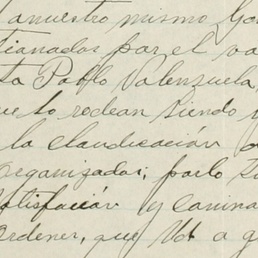 a nuestro mismo Go
tianados por el va
ta Pablo Valenzuela,
ue lo rodean siendo y
la claudicación o
Organizados; porlo t
atisfación y camina
Ordener, que Vd a g